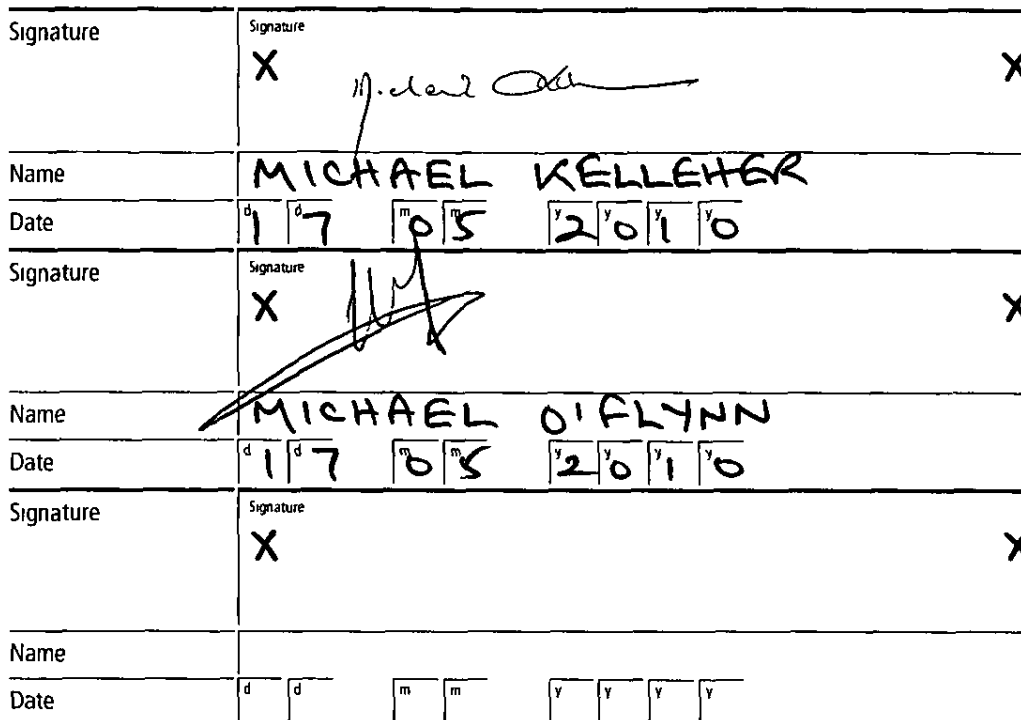 Signature Signature
X X
Michael
Name MICHAEL KELLEHER
Date d1 d7 m0 m5 y2 y0 y1 y0
Signature Signature
X X
Name MICHAEL O'FLYNN
Date d1 d7 m0 m5 y2 y0 y1 y0
Signature Signature
X X
Name
Date d d m m y y y y